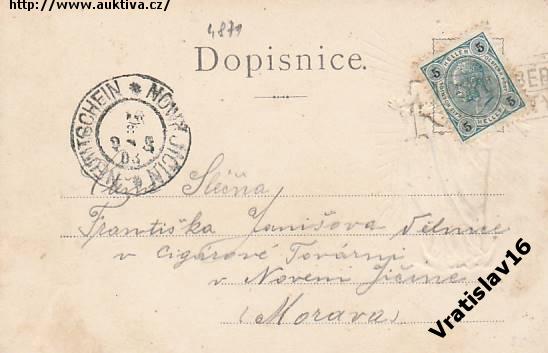 https://www.auktiva.cz/
4879
Dopisnice.
NEUTITSCHEIN * NOVÝ JIČÍN *
5 HELLER 5
5 HELLER 5
Slečna
Františka Janišova Dělnice
v Cigárové Továrni
v Novém Jičíně
(Morava)
Vratislav16